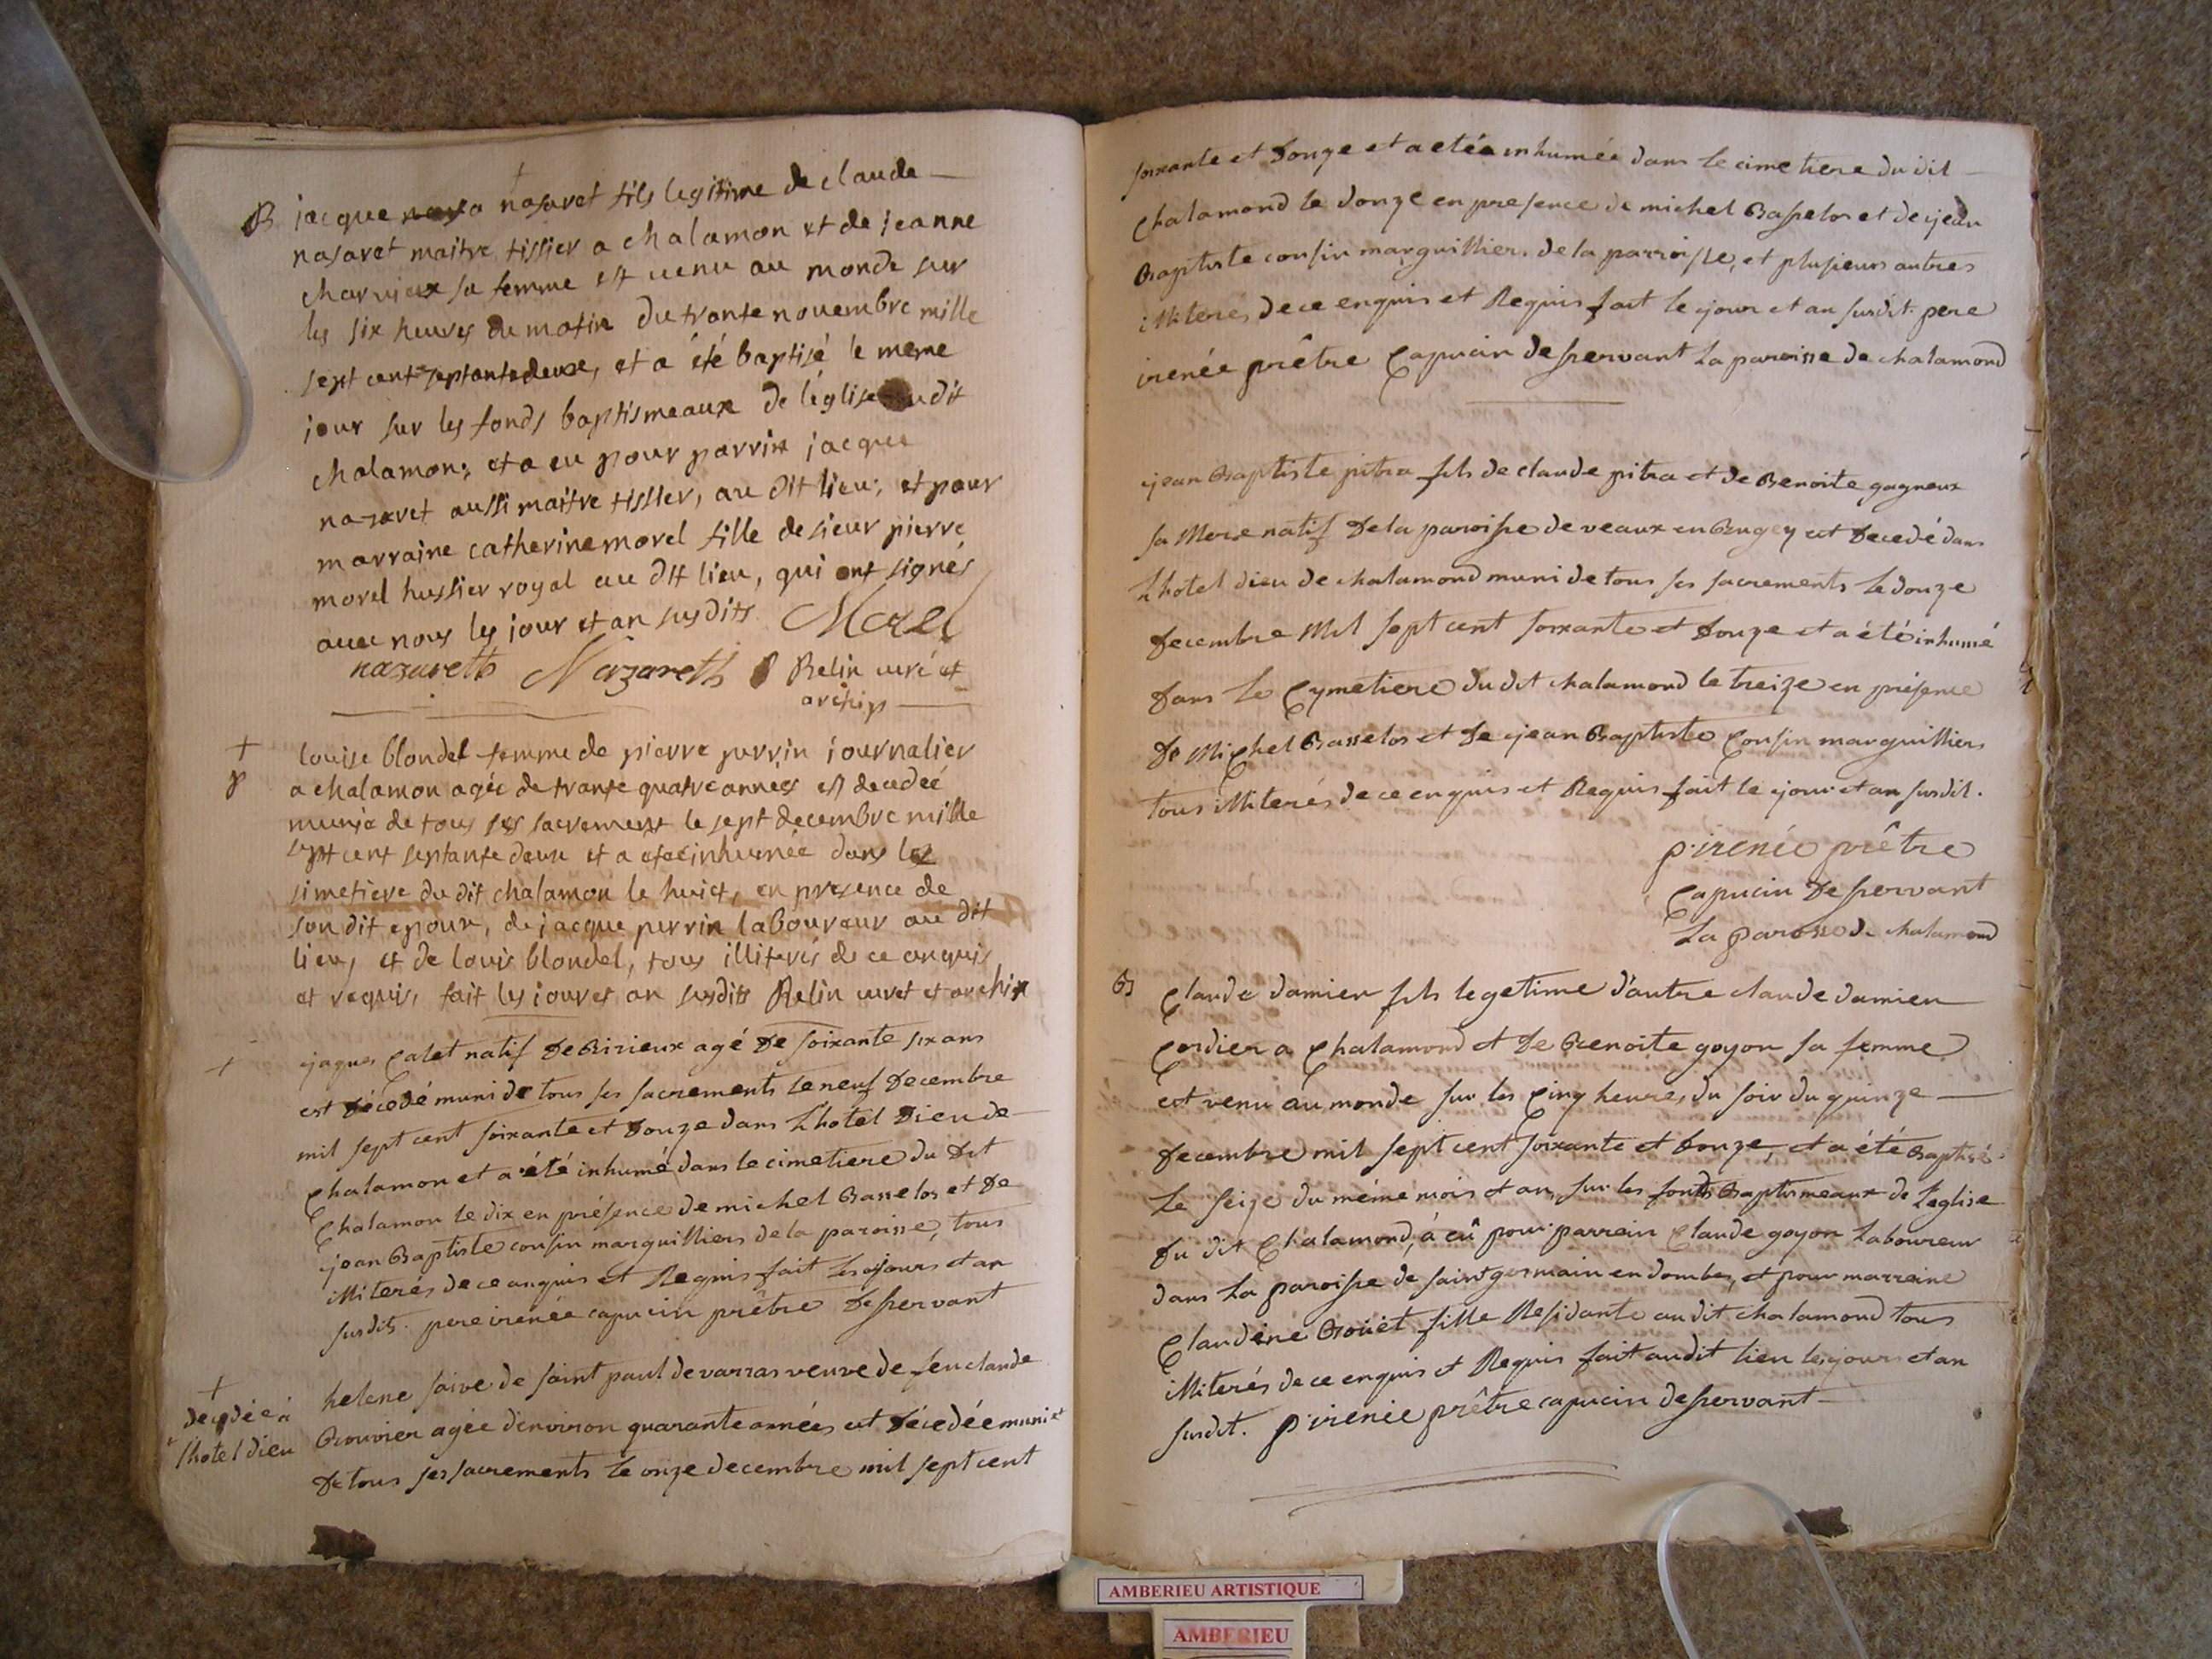 B jacque nasaret fils legitime de claude
nasaret maitre tissier a chalamon et de jeanne
charvieux sa femme est uenu au monde sur
les six heures du matin du trante nouembre mille
sept cent septantedeuxe, et a été baptisé le meme
jour sur les fonds baptismeaux de l'église dudit
chalamon; et a eu pour parrin jacque
nazaret aussi maitre tissier, au dit lieu; et pour
marraine catherine morel fille de sieur pierre
morel hussier royal au dit lieu, qui ont signés
auec nous les jour et an susdits Morel
nazareth Nazareth Relin curé et
archip
+ louise blondel femme de pierre perrin journalier
a chalamon agée de trante quatre années est decedeé
munie de tous ses sacrement le sept decembre mille
sept cent septante deux et a eteé inhumée dans le
simetiere du dit chalamon le huict, en presence de
son dit epoux, de jacque perrin laboureur au dit
lieu, et de louis blondel, tous illiterés de ce anquis
et requis, fait les jour et an susdits Relin curet et archip
+ jaques Calet natif De Birieux agé De soixante six ans
est Décedé muni de tous ses sacrements le neuf Decembre
mil sept cent soixante et Douze dans L'hotel Dieu de
Chalamon et a été inhumé dans le cimetiere du Dit
Chalamon le dix en présence de michel Basselos et De
jean Baptiste cousin marguilliers de la paroisse, tous
illiterés de ce anquis et Requis fait les jours et an
susdits. pere irenée capucin prêtre Desservant
+
decedée a
l'hotel dieu
helene saive de saint paul de varras veuve de feu claude
Bouvier agée d'environ quarante années est Décedée munie
De tous ses sacrements le onze decembre mil sept cent
soixante et Douze et a etée inhumée dans le cimetiere du dit
Chalamond le donze en presence de michel Basselos et de jean
Baptiste cousin marguilliers de la parroisse, et plusieurs autres
illiterés de ce enquis et Requis fait le jour et an susdit. pere
irenée prêtre Capucin desservant La paroisse de chalamond
jean Baptiste pitra fils de claude pitra et de Benoite gagneux
sa Mere natif De la paroisse de veaux en Bugey est Decedé dans
L'hotel dieu de chalamond muni de tous ses sacrements Le douze
Decembre Mil sept cent soixante et Douze et a été inhumé
Dans Le Cymetiere du dit chalamond le treize en présence
De Michel Basselos et De jean Baptiste Cousin marguilliers
tous illiterés de ce enquis et Requis fait le jour et an susdit.
p. irenée prêtre
Capucin Desservant
La paroisse de chalamond
B Claude damien fils legetime d'autre claude damien
Cordier a Chalamond et De Benoite goyon sa femme
est venu au monde sur les Cinq heures du soir du quinze
Decembre mil sept cent soixante et douze, et a été Baptisé
Le seize du même mois et an, sur les fonds Baptismeaux de L'eglise
du dit Chalamond, à eû pour parrain Claude goyon Laboureur
dans La paroisse de saint germain en dombes, et pour marreine
Claudine Boüet fille Residante au dit chalamond tous
illiterés de ce enquis et Requis fait audit lieu les jours et an
susdit. p. irenée prêtre capucin desservant
AMBERIEU ARTISTIQUE
AMBERIEU